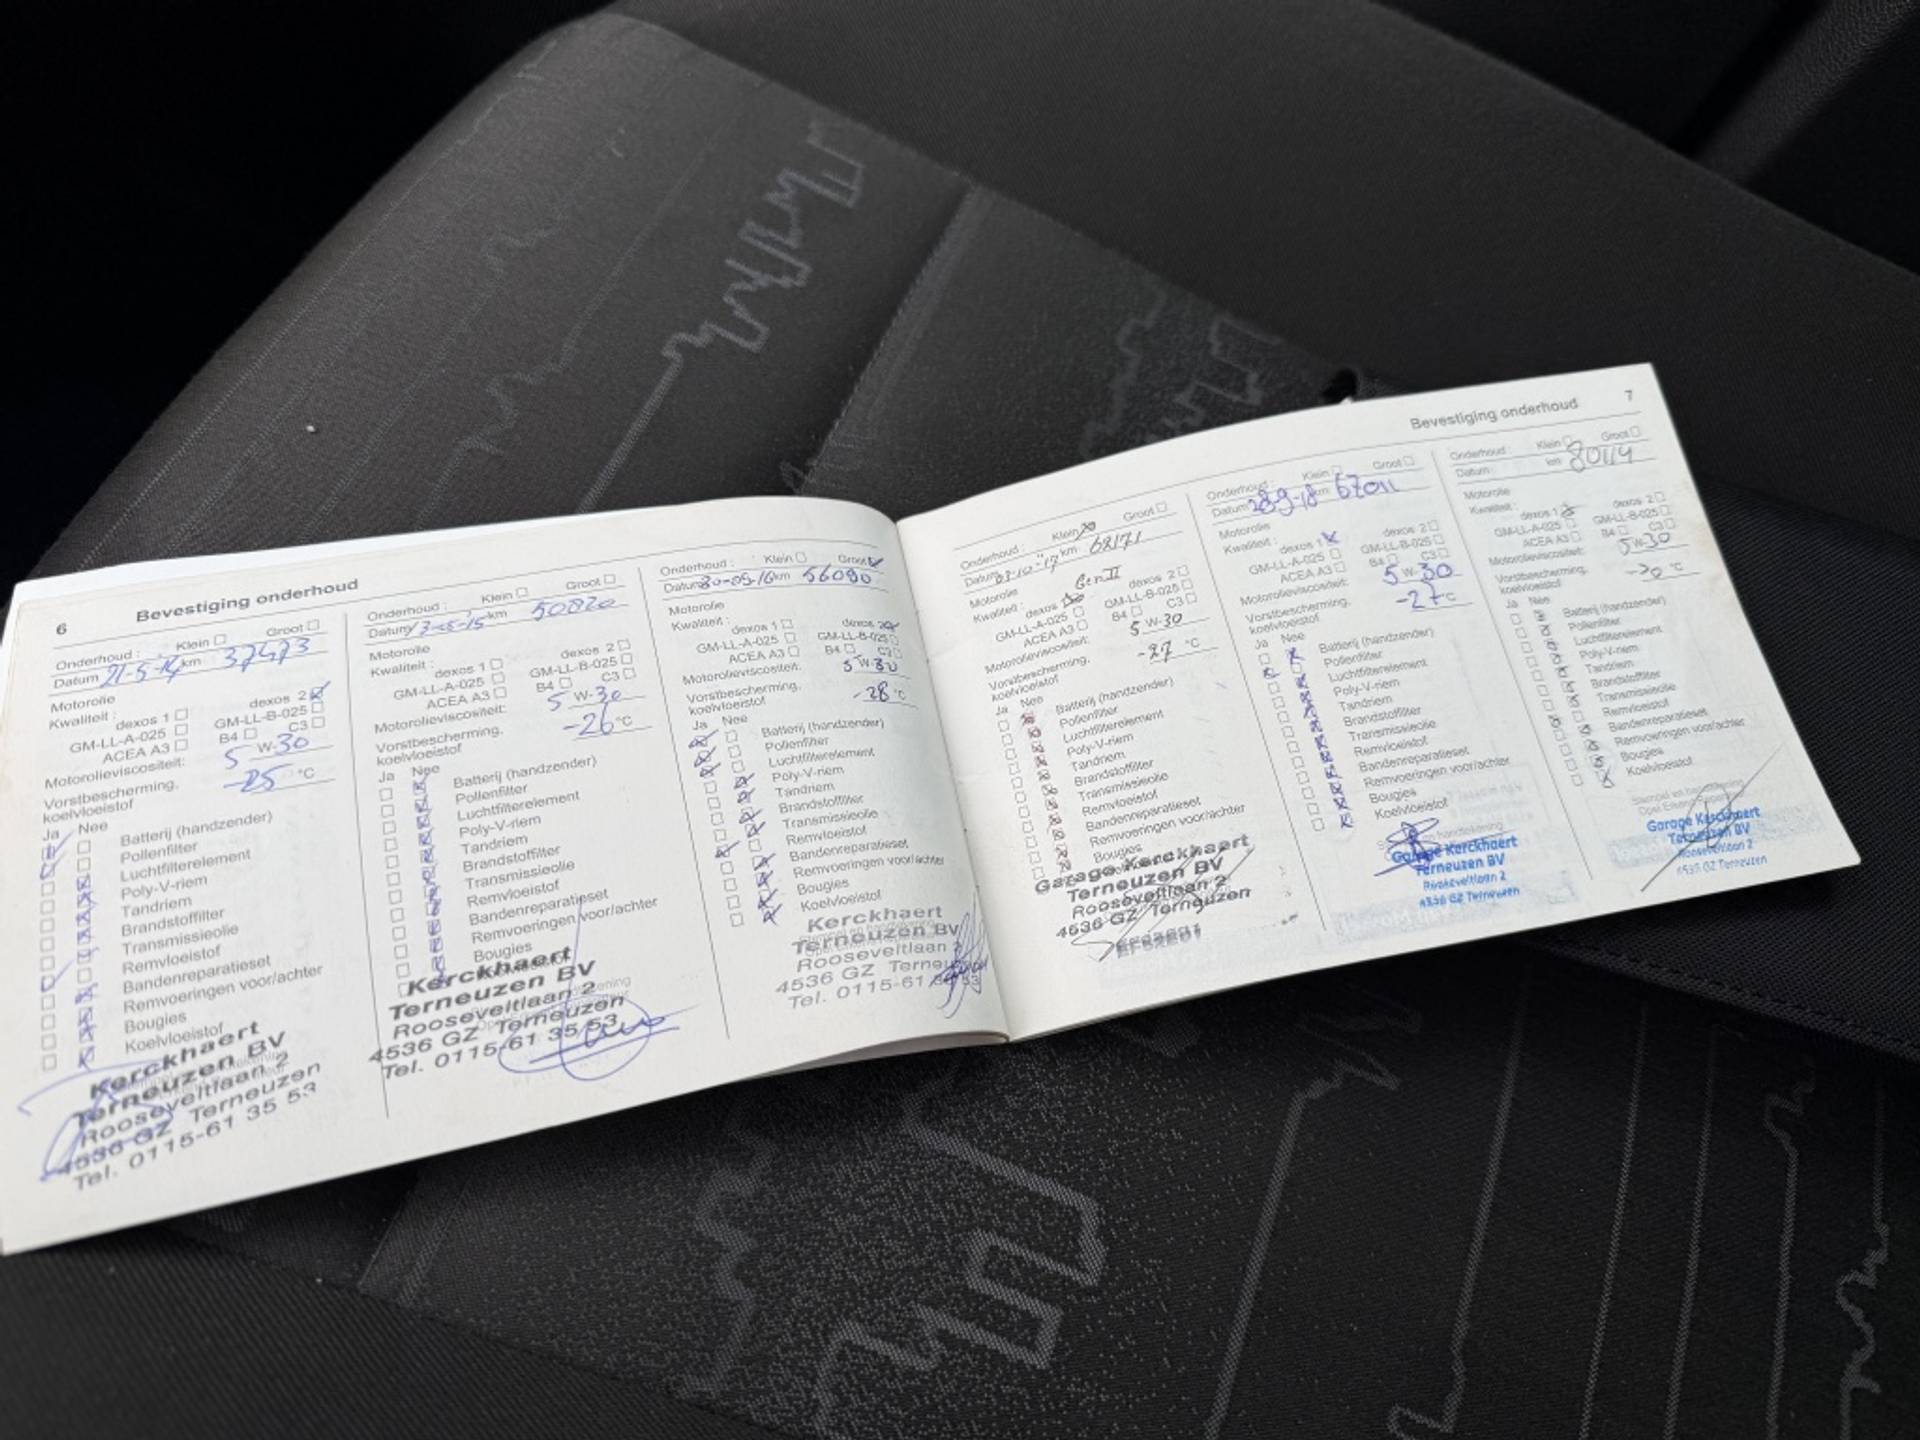 6 Bevestiging onderhoud
Onderhoud : Klein Groot
Datum 21-5-14 km 37473
Motorolie
Kwaliteit : dexos 1 dexos 2
GM-LL-A-025 GM-LL-B-025
ACEA A3 B4 C3
Motorolieviscositeit: 5 W-30
Vorstbescherming, koelvloeistof -25 °C
Ja Nee
Batterij (handzender)
Pollenfilter
Luchtfilterelement
Poly-V-riem
Tandriem
Brandstoffilter
Transmissieolie
Remvloeistof
Bandenreparatieset
Remvoeringen voor/achter
Bougies
Koelvloeistof
Kerckhaert
Terneuzen BV
Rooseveltlaan 2
4536 GZ Terneuzen
Tel. 0115-61 35 53
Onderhoud : Klein Groot
Datum km 50820
Motorolie
Kwaliteit : dexos 1 dexos 2
GM-LL-A-025 GM-LL-B-025
ACEA A3 B4 C3
Motorolieviscositeit: 5 W-30
Vorstbescherming, koelvloeistof -26 °C
Ja Nee
Batterij (handzender)
Pollenfilter
Luchtfilterelement
Poly-V-riem
Tandriem
Brandstoffilter
Transmissieolie
Remvloeistof
Bandenreparatieset
Remvoeringen voor/achter
Bougies
Kerckhaert
Terneuzen BV
Rooseveltlaan 2
4536 GZ Terneuzen
Tel. 0115-61 35 53
Onderhoud : Klein Groot
Datum 30-05-16 km 56090
Motorolie
Kwaliteit : dexos 1 dexos 2
GM-LL-A-025 GM-LL-B-025
ACEA A3 B4 C3
Motorolieviscositeit: 5 W-30
Vorstbescherming, koelvloeistof -28 °C
Ja Nee
Batterij (handzender)
Pollenfilter
Luchtfilterelement
Poly-V-riem
Tandriem
Brandstoffilter
Transmissieolie
Remvloeistof
Bandenreparatieset
Remvoeringen voor/achter
Bougies
Koelvloeistof
Kerckhaert
Terneuzen BV
Rooseveltlaan 2
4536 GZ
Tel. 0115-61
Bevestiging onderhoud 7
Onderhoud : Klein Groot
Datum km
Motorolie Gen II
Kwaliteit : dexos dexos 2
GM-LL-A-025 GM-LL-B-025
ACEA A3 B4 C3
Motorolieviscositeit: 5 W-30
Vorstbescherming, koelvloeistof -27 °C
Ja Nee
Batterij (handzender)
Pollenfilter
Luchtfilterelement
Poly-V-riem
Tandriem
Brandstoffilter
Transmissieolie
Remvloeistof
Bandenreparatieset
Remvoeringen voor/achter
Bougies
Garage Kerckhaert
Terneuzen BV
Rooseveltlaan 2
4536 GZ Terneuzen
Onderhoud : Klein Groot
Datum 28-9-18 km 67011
Motorolie
Kwaliteit : dexos 1 dexos 2
GM-LL-A-025 GM-LL-B-025
ACEA A3 B4 C3
Motorolieviscositeit: 5 W-30
Vorstbescherming, koelvloeistof -27 °C
Ja Nee
Batterij (handzender)
Pollenfilter
Luchtfilterelement
Poly-V-riem
Tandriem
Brandstoffilter
Transmissieolie
Remvloeistof
Bandenreparatieset
Remvoeringen voor/achter
Bougies
Koelvloeistof
Garage Kerckhaert
Terneuzen BV
Rooseveltlaan 2
4536 GZ Terneuzen
Onderhoud : Klein Groot
Datum : km 80114
Motorolie
Kwaliteit : dexos 1 dexos 2
GM-LL-A-025 GM-LL-B-025
ACEA A3 B4 C3
Motorolieviscositeit: 5 W-30
Vorstbescherming, koelvloeistof -30 °C
Ja Nee
Batterij (handzender)
Pollenfilter
Luchtfilterelement
Poly-V-riem
Tandriem
Brandstoffilter
Transmissieolie
Remvloeistof
Bandenreparatieset
Remvoeringen voor/achter
Bougies
Koelvloeistof
Garage Kerckhaert
Terneuzen BV
Rooseveltlaan 2
4536 GZ Terneuzen